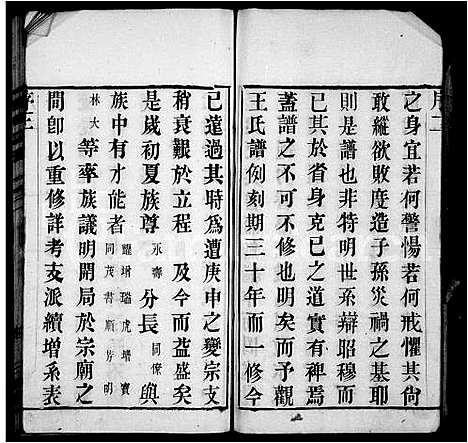 序二
之身宜若何警惕若何戒懼其尙
敢縱欲敗度造子孫災禍之基耶
則是譜也非特明世系辯昭穆而
已其於省身克己之道實有裨焉
蓋譜之不可不修也明矣而予觀
王氏譜例刻期三十年而一修今
已蓬過其時爲遭庚申之變宗支
稍衰艱於立程 及今而益盛矣
是歲初夏族尊 永壽 分長 同僚 與
族中有才能者 耀增瑞虎增寶 同茂書順芳明
林大 等率族議明開局於宗廟之
間卽以重修詳考支派續增系表
序三